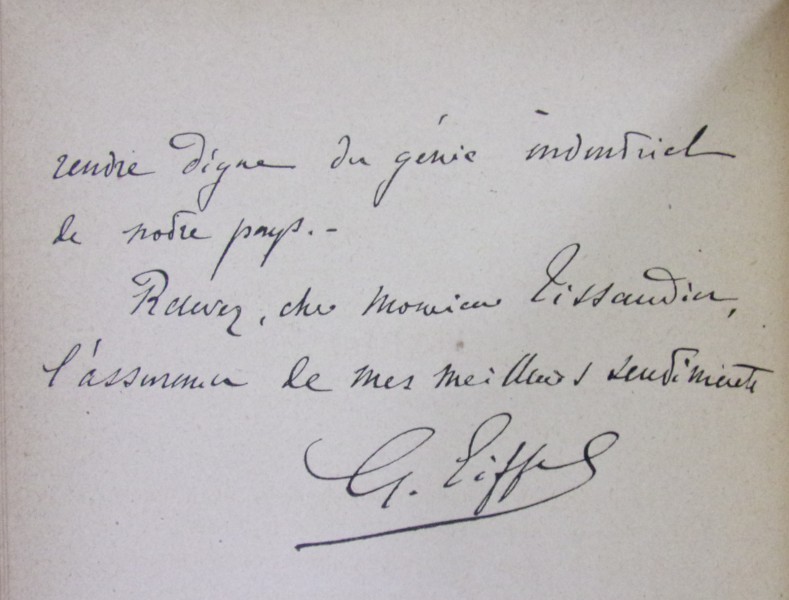 rendre digne du génie industriel
de notre pays. -
Recevez, cher Monsieur Tissandier,
l'assurance de mes meilleurs sentiments
G. Eiffel